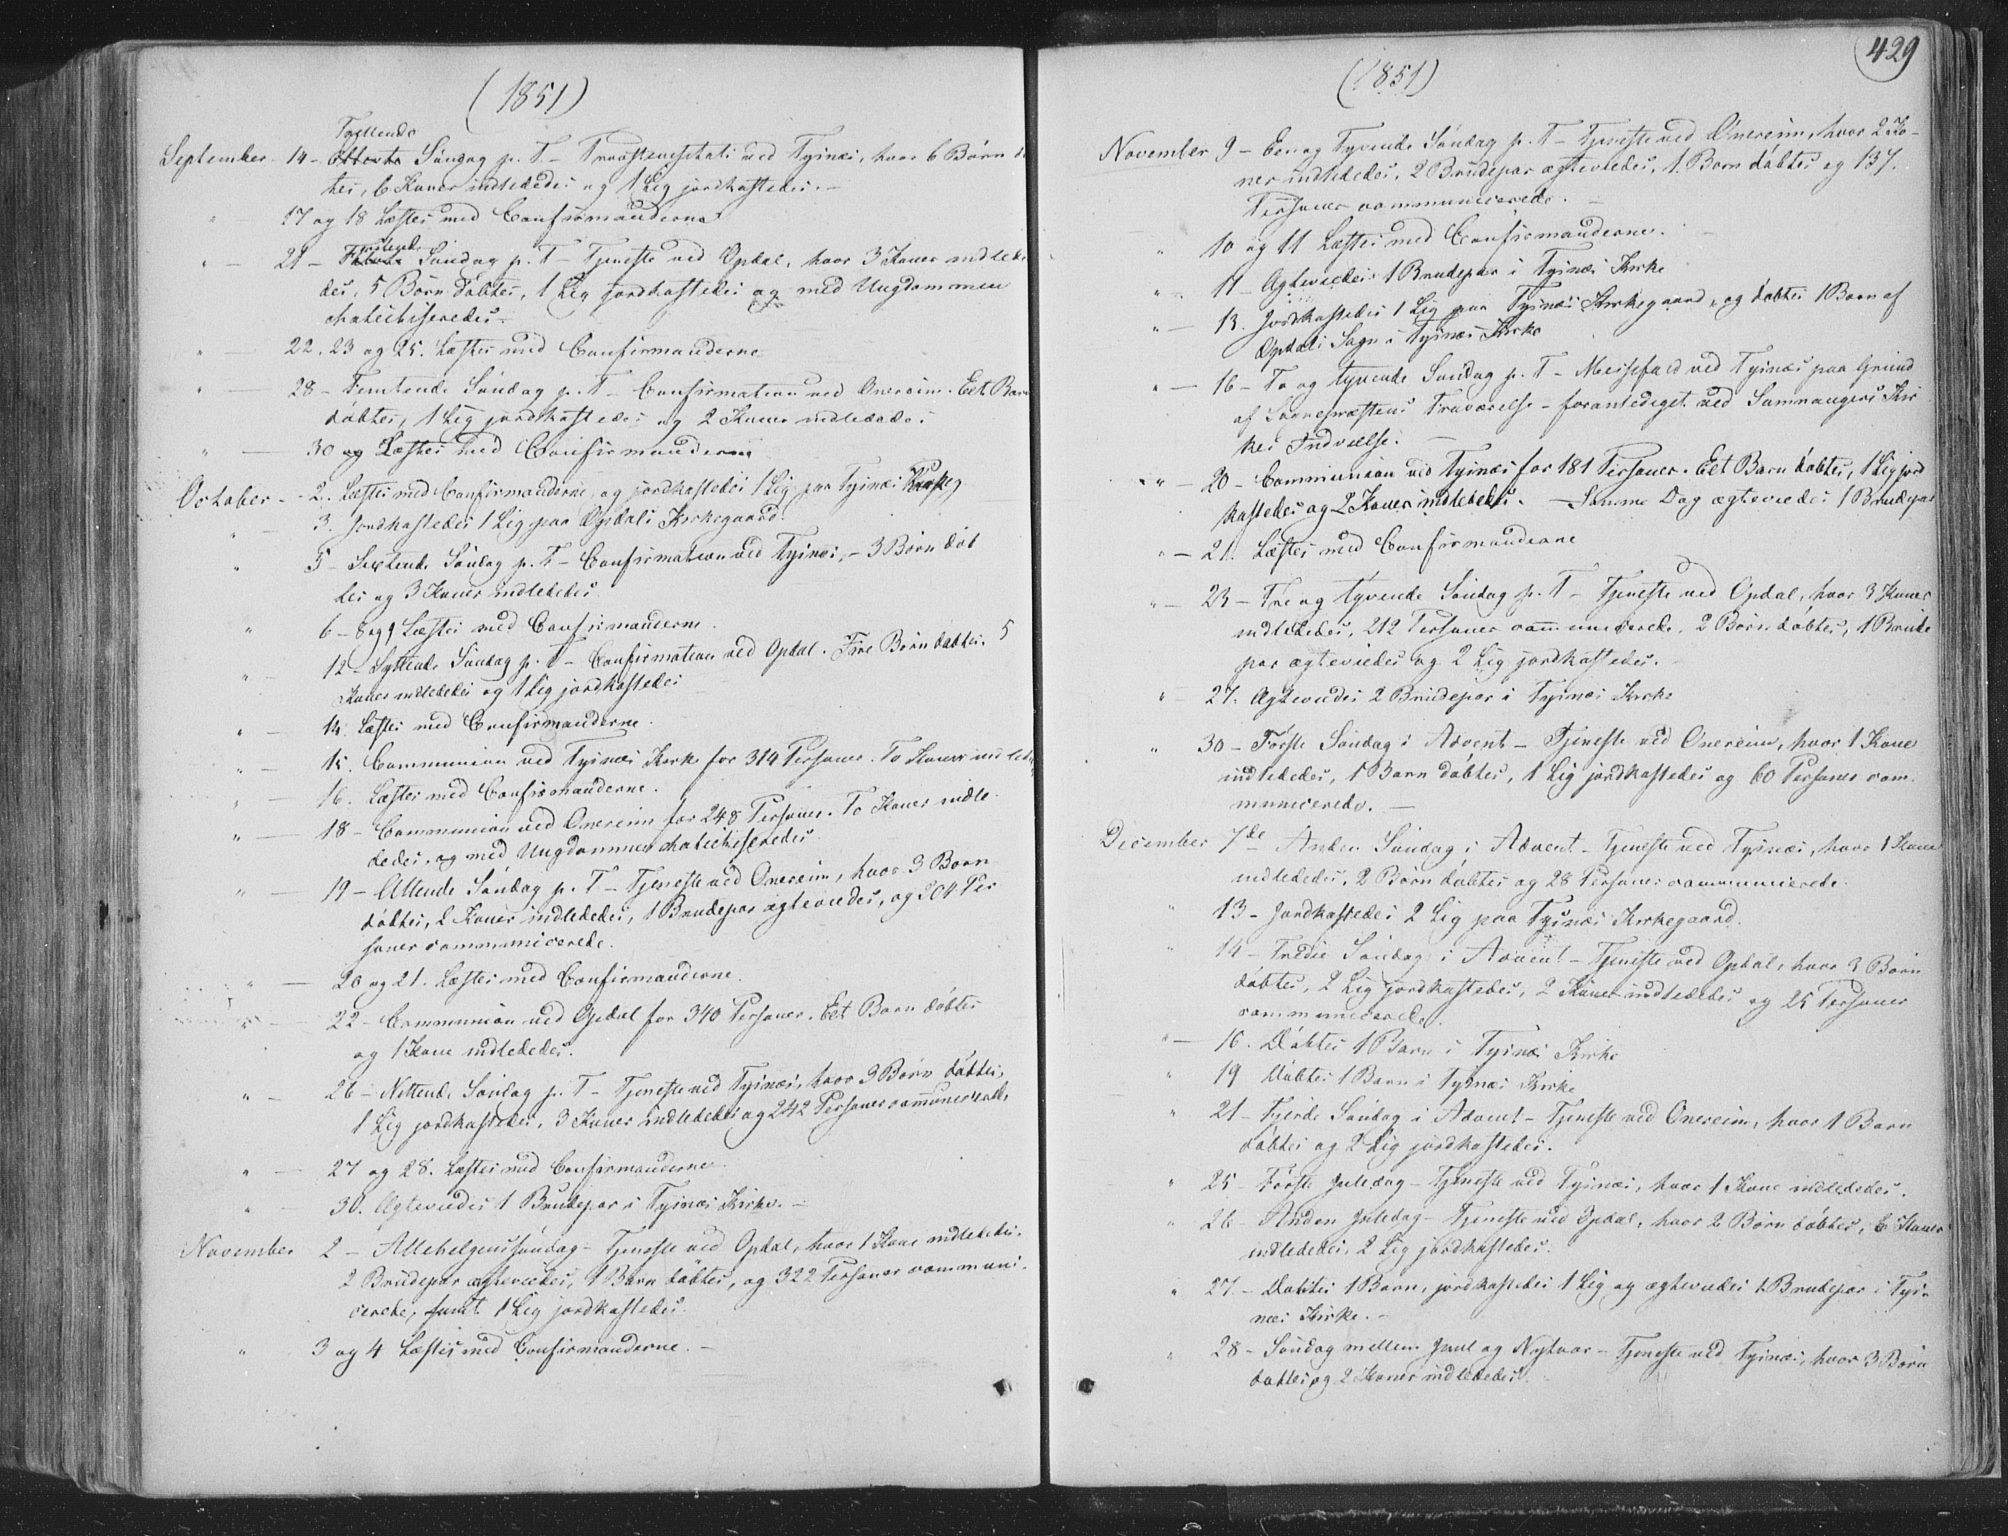 (1851)
Tyttende
September - 14 - Søndag p. T - Provstevisitats ved Tysnæs, hvor 6 Børn
tes, 6 Koner indlededes og 1 Lig jordkastedes. -
" - 17 og 18 Læstes med Confirmanderne
" - 21 - Søndag p. T - Tjeneste ved Opdal, hvor 3 Koner indlede
des, 5 Børn døbtes, 1 Lig jordkastedes og med Ungdommen
chatechiseredes -
" - 22, 23 og 25. Læstes med Confirmanderne
" - 28 - Femtende Søndag p. T - Confirmation ved Onereim. Eet Barn
døbtes, 1 Lig jordkastedes og 2 Koner indlededes
" - 30 og Læstes med Confirmanderne
October - 2. Læstes med Confirmanderne, og jordkastedes 1 Lig paa Tysnæs Kirkeg
" - 3. Jordkastedes 1 Lig paa Opdals Kirkegaard.
" 5 - Sextende Søndag p. T - Confirmation ved Tysnæs, - 3 Børn døb
tes og 3 Koner indlededes.
" 6 - 8 og 9 Læstes med Confirmanderne.
" - 12 - Syttende Søndag p. T - Confirmation ved Opdal. Fire Børn døbtes. 5
Koner indlededes og 1 Lig jordkastedes
" - 14. Læstes med Confirmanderne.
" - 15. Communion ved Tysnæs Kirke for 314 Personer. To Koner indlede
" - 16. Læstes med Confirmanderne.
" - 18 - Communion ved Onereim for 248 Personer. To Koner indle-
dedes, og med Ungdommen chatechiseredes
" - 19 - Attende Søndag p. T - Tjeneste ved Onereim, hvor 3 Børn
døbtes, 2 Koner indlededes, 1 Brudepar ægteviedes, og 204 Per
soner communicerede.
" - 20 og 21. Læstes med Confirmanderne
" - 22 - Communion ved Opdal for 340 Personer. Eet Barn døbtes
og 1 Kone indlededes.
" - 26 - Nittende Søndag p. T - Tjeneste ved Tysnæs, hvor 3 Børn døbtes,
1 Lig jordkastedes, 3 Koner indlededes og 242 Personer communicerede
" - 27 og 28. Læstes med Confirmanderne.
" - 30. Ægteviedes 1 Brudepar i Tysnæs Kirke. -
November 2 - Allehelgenssøndag - Tjeneste ved Opdal, hvor 1 Kone indlededes,
2 Brudepar ægteviedes, 1 Barn døbtes, og 322 Personer communi-
cerede, samt 1 Lig jordkastedes.
" 3 og 4 Læstes med Confirmanderne. -
429
(1851)
November 9 - Een og Tyvende Søndag p. T - Tjeneste ved Onereim, hvor 2 Ko-
ner indlededes, 2 Brudepar ægteviedes, 1 Barn døbtes og 137.
Personer communicerede. -
" 10 og 11 Læstes med Confirmanderne. -
" - 11 - Ægteviedes 1 Brudepar i Tysnæs Kirke
" - 13. Jordkastedes 1 Lig paa Tysnæs Kirkegaard, og døbtes 1 Barn af
Opdals Sogn i Tysnæs Kirke
" - 16 - To og tyvende Søndag p. T - Messefald ved Tysnæs paa Grund
af Sognepræstens Fraværelse - foranlediget ved Samnangers Kir
kes Indvielse. -
" - 20 - Communion ved Tysnæs for 181 Personer. Eet Barn døbtes, 1 Lig jord
kastedes og 2 Koner indlededes. - Samme Dag ægteviedes 1 Brudepar
" - 21. Læstes med Confirmanderne
" - 23 - Tre og tyvende Søndag p. T - Tjeneste ved Opdal, hvor 3 Koner
indlededes, 212 Personer communicerede, 2 Børn døbtes, 1 Brude
par ægteviedes og 2 Lig jordkastedes. -
" - 27. Ægteviedes 2 Brudepar i Tysnæs Kirke
" 30 - Første Søndag i Advent - Tjeneste ved Onereim, hvor 1 Kone
indlededes, 1 Barn døbtes, 1 Lig jordkastedes og 60 Personer com-
municerede. -
December 7de Anden Søndag i Advent - Tjeneste ved Tysnæs, hvor 1 Kone
indlededes, 2 Børn døbtes og 28 Personer communicerede.
" 13 - Jordkastedes 2 Lig paa Tysnæs Kirkegaard.
" 14 - Tredie Søndag i Advent - Tjeneste ved Opdal, hvor 3 Børn
døbtes, 2 Lig jordkastedes, 2 Koner indlededes og 25 Personer
communicerede.
" - 16. Døbtes 1 Barn i Tysnæs Kirke
" 19 Døbtes 1 Barn i Tysnæs Kirke
" 21 - Fjerde Søndag i Advent - Tjeneste ved Onereim, hvor 1 Barn
døbtes og 2 Lig jordkastedes.
" 25 - Første Juledag - Tjeneste ved Tysnæs, hvor 1 Kone indlededes.
" 26 - Anden Juledag - Tjeneste ved Opdal, hvor 2 Børn døbtes, 6 Koner
indlededes, 2 Lig jordkastedes.
" 27. - Døbtes 1 Barn, jordkastedes 1 Lig og ægteviedes 1 Brudepar i Tys-
næs Kirke. -
" 28 - Søndag mellem Juul og Nytaar - Tjeneste ved Tysnæs, hvor 3 Børn
døbtes og 2 Koner indlededes.